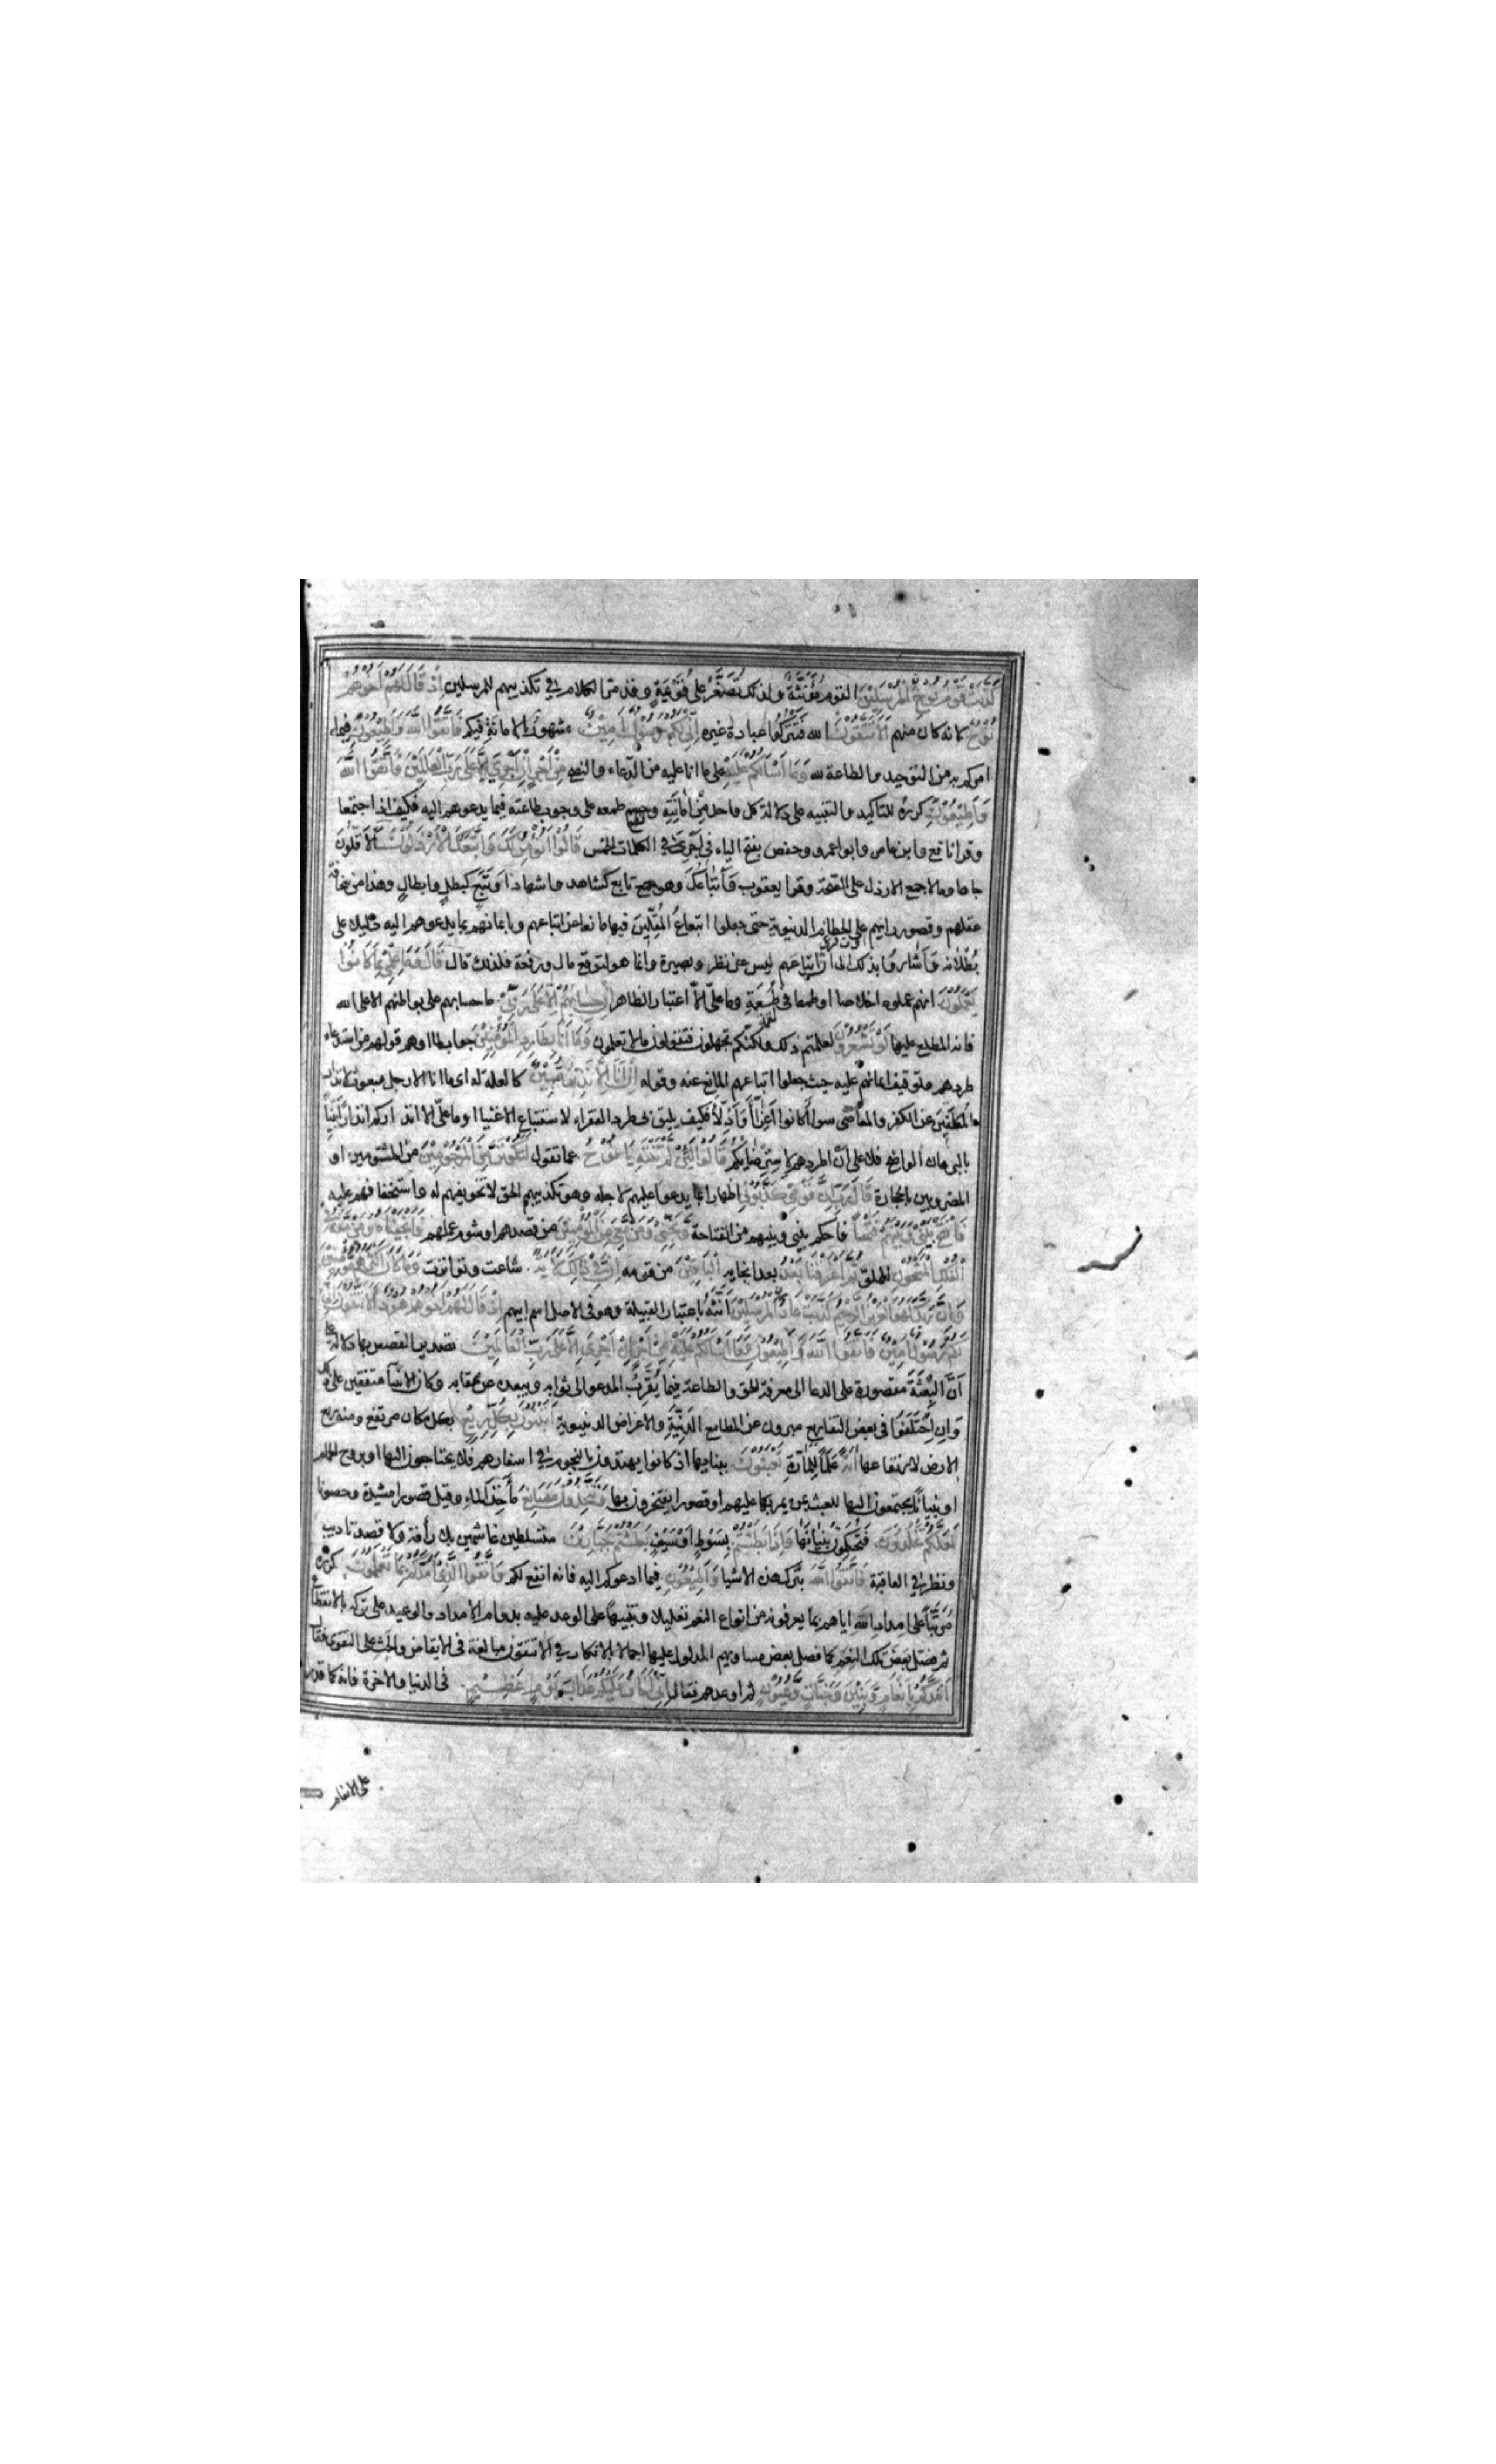 كَذَّبَتْ قَوْمُ نُوْحٍ الْمُرْسَلِيْنَ القوم مُؤَنَّثَةٌ ولذلك تُصَغَّرُ على قُوَيْمَةٍ وقد مرّ الكلام في تكذيبهم المرسلين اِذْ قَالَ لَهُمْ اَخُوْهُمْ
نُوْحٌ لانه كان منهم اَلَا تَتَّقُوْنَ الله فَتَتْرُكُوا عبادة غيره اِنِّيْ لَكُمْ رَسُوْلٌ اَمِيْنٌ مشهورٌ بالامانة فيكم فَاتَّقُوا اللّٰهَ وَاَطِيْعُوْنِ فيما
امركم به من التوحيد والطاعة لله وَمَا اَسْاَلُكُمْ عَلَيْهِ على ما انا عليه من الدّعاء والنصح مِنْ اَجْرٍ اِنْ اَجْرِيَ اِلَّا عَلٰى رَبِّ الْعَالَمِيْنَ فَاتَّقُوا اللّٰهَ
وَاَطِيْعُوْنِ كرره للتاكيد والتنبيه على دلالة كل واحد مِنْ اَمَانَتِهِ وحسم طمعه على وجوب طاعته فيما يدعوهم اليه فكيف اذا اجتمعا
وقرا نافع وابن عامر وابو عمرو وحفص بفتح الياء في اَجْرِيَ في الكلمات الخمس قَالُوْا اَنُؤْمِنُ لَكَ وَاتَّبَعَكَ الْاَرْذَلُوْنَ الاقلون
جاها ومالا جمع الارذل على الصّحة وقرا يعقوب وَاَتْبَاعُكَ وهو جمع تابع كشاهد واشهاد او تَبَعٍ كبطلٍ وابطالٍ وهذا من سخافة
عقلهم وقصور رايهم على الحطام الدنيوية حتى جعلوا اتباعُ المُقِلِّينَ فيها مانعا عن اتباعهم وبايمانهم بما يدعوهم اليه دليلا على
بُطْلانه وَاَشَاروا بذلك الى ان اتباعهم ليس عن نظر وبصيرة وانما هو لتوقع مال ورفعة فلذلك قال قَالَ وَمَا عِلْمِيْ بِمَا كَانُوْا
يَعْمَلُوْنَ انهم عملوه اخلاصا او طمعا في طُعْمَةٍ وما علىّ الّا اعتبار الظاهر اِنْ حِسَابُهُمْ اِلَّا عَلٰى رَبِّيْ ما حسابهم على بواطنهم الا على الله
فانه المطلع عليها لَوْ تَشْعُرُوْنَ لعلمتم ذلك ولكنّكم تجهلون فتقولون ما لا تعلمون وَمَا اَنَا بِطَارِدِ الْمُؤْمِنِيْنَ جواب لما اوهم قولهم من استدعاء
طردهم وتوقيف ايمانهم عليه حيث جعلوا اتباعهم المانع عنه وقوله اِنْ اَنَا اِلَّا نَذِيْرٌ مُبِيْنٌ كالعلة له اى ما انا الا رجل مبعوث لانذار
المُكَلَّفِينَ عن الكفر والمعاصى سواءٌ كانوا اَعِزّاً او اَذِلّاً فكيف يليق بى طرد الفقراء لاستتباع الاغنيا او ما علىّ الا انذاركم انذارا بَيِّناً
بالبرهان الواضح فلا على اَنْ اطردهم لاسترضائكم قَالُوْا لَئِنْ لَمْ تَنْتَهِ يَا نُوْحُ عما تقول لَتَكُوْنَنَّ مِنَ الْمَرْجُوْمِيْنَ من المشتومين او
المضروبين بالحجارة قَالَ رَبِّ اِنَّ قَوْمِيْ كَذَّبُوْنِ اظهارا لما يدعوا عليهم لاجله وهو تكذيبهم الحق لا تخويفهم له واستخفافهم عليه
فَافْتَحْ بَيْنِيْ وَبَيْنَهُمْ فَتْحًا فاحكم بينى وبينهم من الفتاحة وَنَجِّنِيْ وَمَنْ مَعِيَ مِنَ الْمُؤْمِنِيْنَ من قصدهم او شؤم عملهم فَاَنْجَيْنَاهُ وَمَنْ مَعَهُ فِي
الْفُلْكِ الْمَشْحُوْنِ المملو ثُمَّ اَغْرَقْنَا بَعْدُ بعد انجايه الْبَاقِيْنَ من قومه اِنَّ فِيْ ذٰلِكَ لَاٰيَةً شاعت وتواترت وَمَا كَانَ اَكْثَرُهُمْ مُؤْمِنِيْنَ
وَاِنَّ رَبَّكَ لَهُوَ الْعَزِيْزُ الرَّحِيْمُ كَذَّبَتْ عَادٌ الْمُرْسَلِيْنَ اَنَّثَهُ باعتبار القبيلة وهو في الاصل اسم ابيهم اِذْ قَالَ لَهُمْ اَخُوْهُمْ هُوْدٌ اَلَا تَتَّقُوْنَ اِنِّيْ
لَكُمْ رَسُوْلٌ اَمِيْنٌ فَاتَّقُوا اللّٰهَ وَاَطِيْعُوْنِ وَمَا اَسْاَلُكُمْ عَلَيْهِ مِنْ اَجْرٍ اِنْ اَجْرِيَ اِلَّا عَلٰى رَبِّ الْعَالَمِيْنَ تصدير القصص بها دلالة على
اَنَّ البِعْثَةَ مقصورة على الدعا الى معرفة الحق والطاعة فيما يُقَرِّبُ المدعو الى ثوابه ويبعده عن عقابه وكان الانبيآ متفقين على ذلك
وَاِنِ اخْتَلَفُوا في بعض التفاريع مبرون عن المطامع الدَّنِيَّةِ والاغراض الدنيوية اَتَبْنُوْنَ بِكُلِّ رِيْعٍ بكل مكان مرتفع ومنه ريع
الارض لارتفاعها اٰيَةً عَلَماً لِلْمَارَّةِ تَعْبَثُوْنَ ببنايها اذ كانوا يهتدون بالنجوم في اسفارهم فلا يحتاجون اليها او بروج الحمام
او بنياناً يجتمعون اليها للعبث بمن يمر بها عليهم او قصورا يفتخرون بها وَتَتَّخِذُوْنَ مَصَانِعَ مآخذ الماء وقيل قصورا مشيدة وحصونا
لَعَلَّكُمْ تَخْلُدُوْنَ فَتُحْكِمُونَ بُنْيَانَهَا وَاِذَا بَطَشْتُمْ بِسَوْطٍ اَوْ سَيْفٍ بَطَشْتُمْ جَبَّارِيْنَ متسلطين غاشمين بلا رأفة ولا قصد تاديب
ونظر في العاقبة فَاتَّقُوا اللّٰهَ بترك هذه الاشيا وَاَطِيْعُوْنِ فيما ادعوكم اليه فانه انفع لكم وَاتَّقُوا الَّذِيْ اَمَدَّكُمْ بِمَا تَعْلَمُوْنَ كرره
مُرَتَّباً على امداد الله اياهم بما يعرفونه من انواع النعم تعليلا وتنبيهاً على الوعد عليه بدوام الامداد والوعيد على تركه بالانقطاع
ثم فصّل بعض تلك النعم كما فصل بعض مساويهم المدلول عليها اجمالا بالانكار في الا تتقون مبالغة في الايقاظ والحث على التقوى فقال
اَمَدَّكُمْ بِاَنْعَامٍ وَبَنِيْنَ وَجَنَّاتٍ وَعُيُوْنٍ ثم اوعدهم فقال اِنِّيْ اَخَافُ عَلَيْكُمْ عَذَابَ يَوْمٍ عَظِيْمٍ في الدنيا والاخرة فانه كما قدر
على الانعام